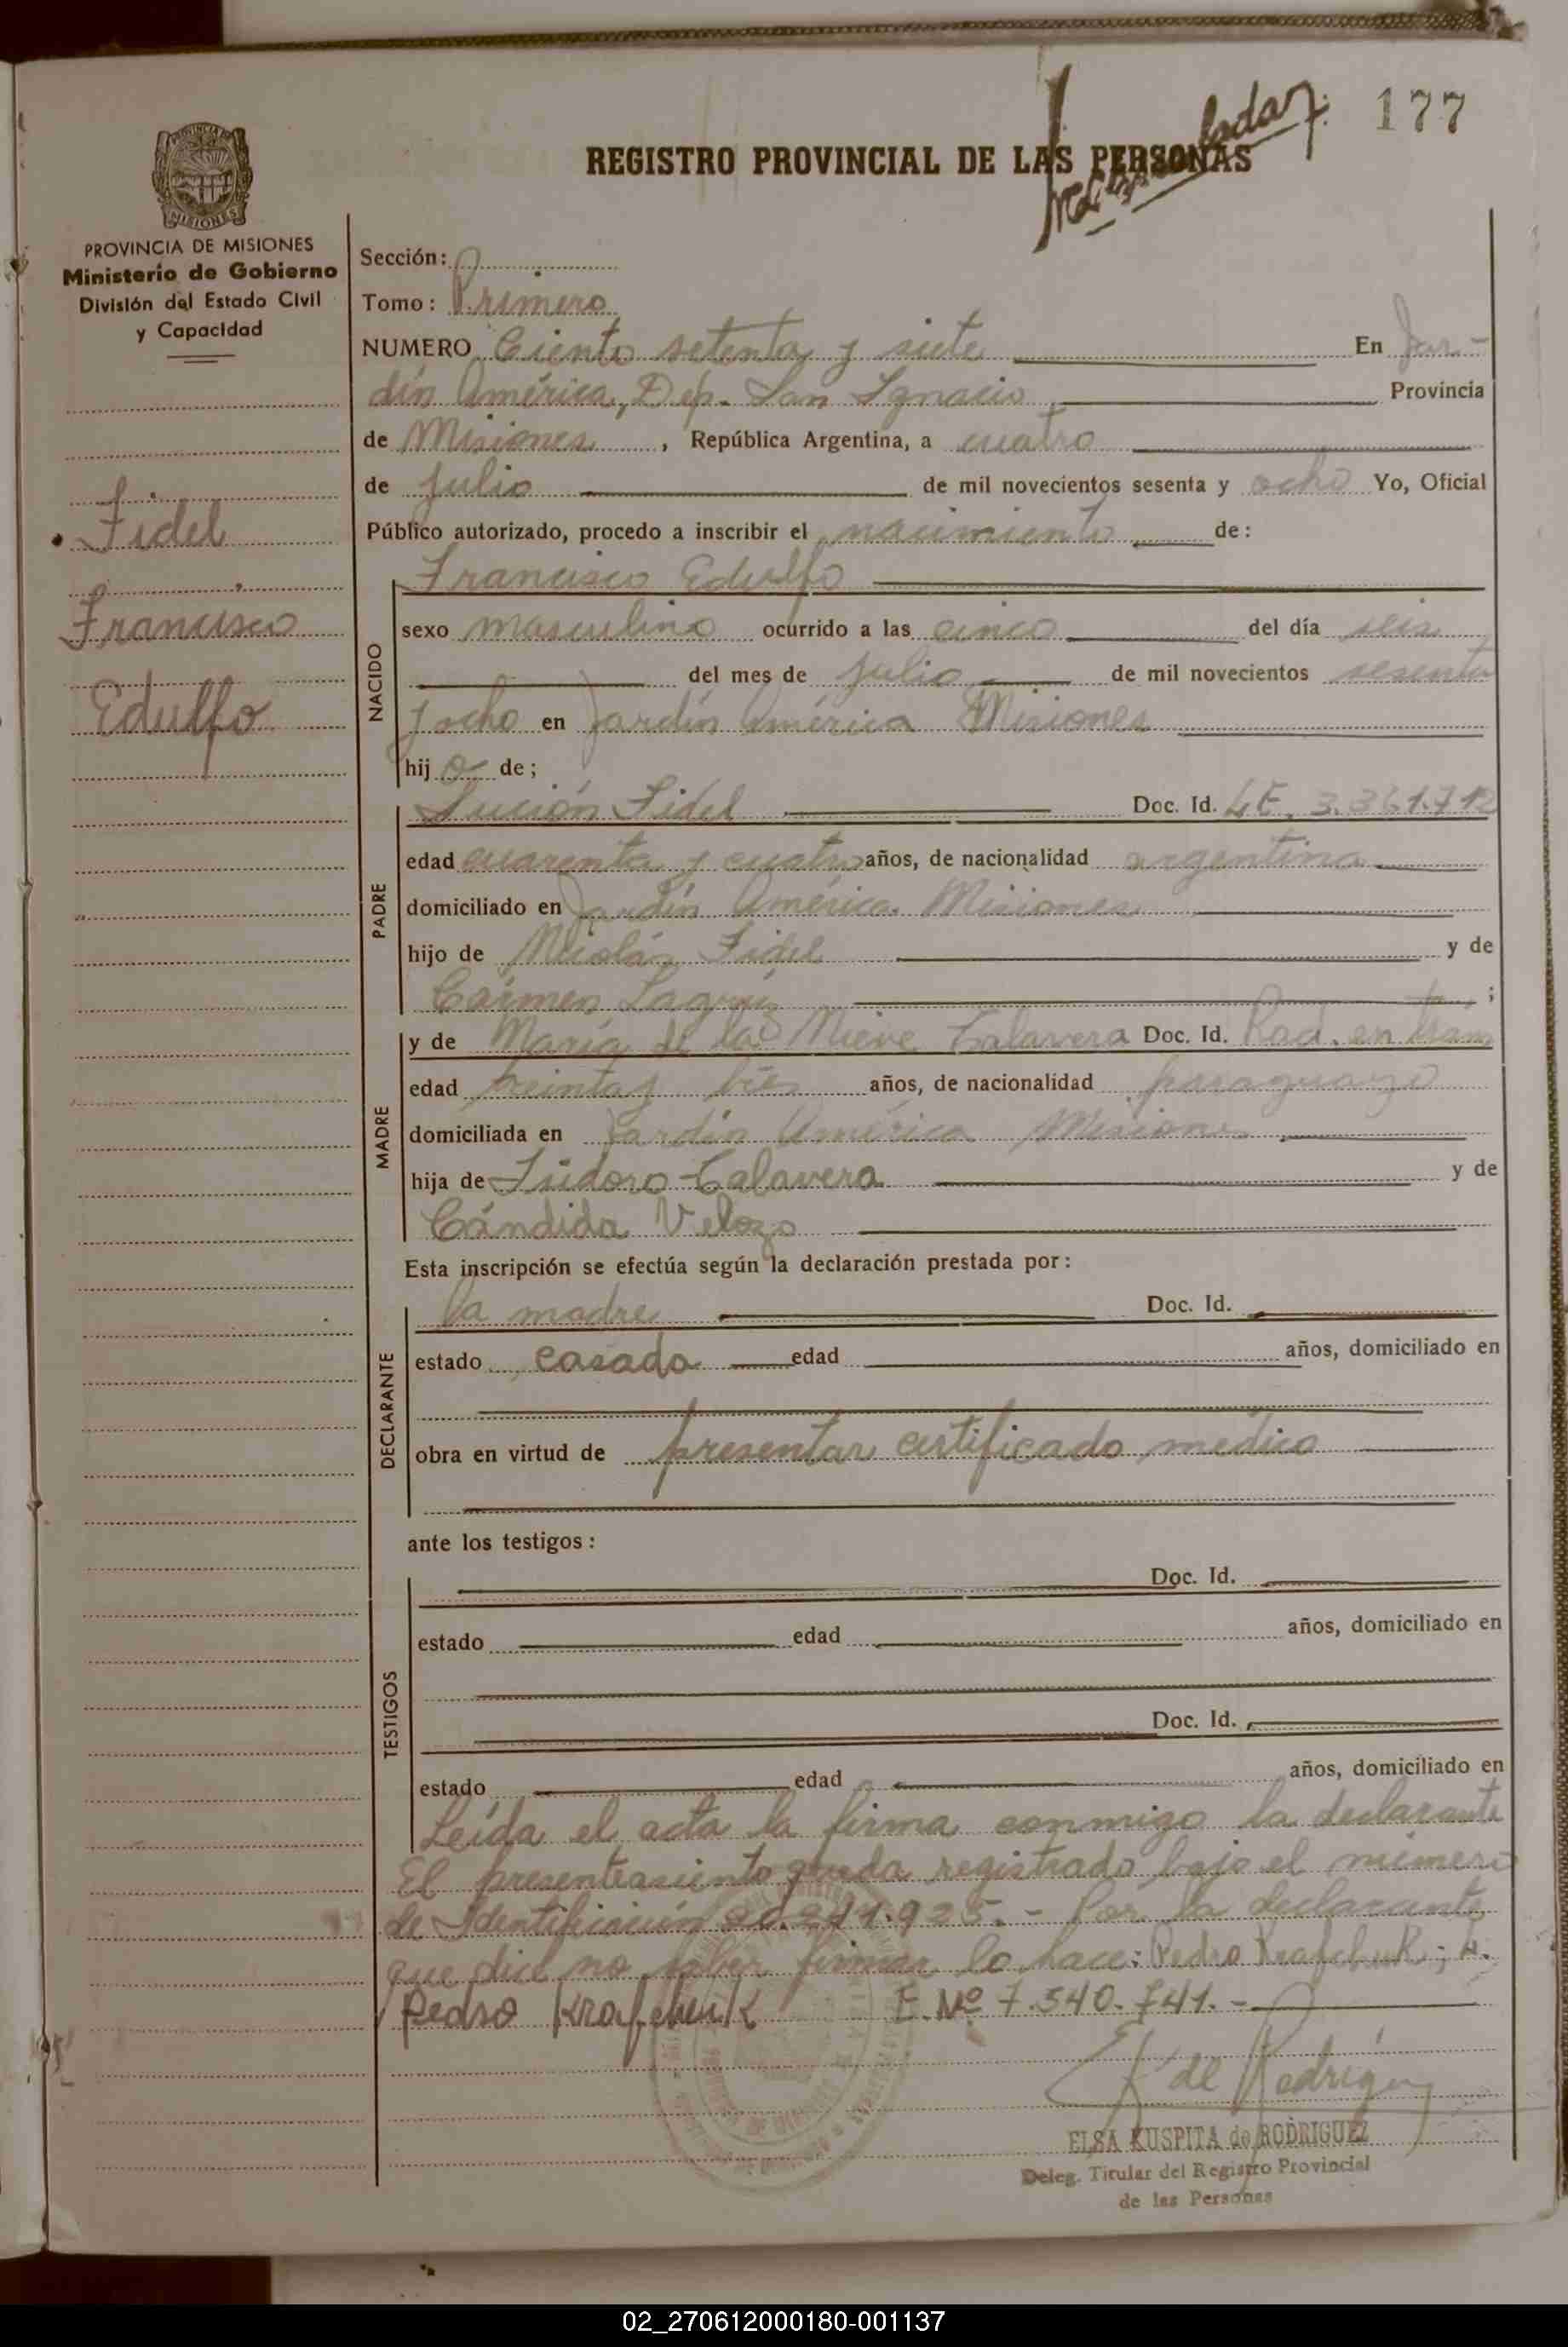 177
REGISTRO PROVINCIAL DE LAS PERSONAS
PROVINCIA DE MISIONES
Ministerio de Gobierno
División del Estado Civil
y Capacidad
Fidel
Francisco
Edulfo
Sección:
Tomo: Primero
NUMERO Ciento setenta y siete En Jar-
dín América, Dep. San Ignacio Provincia
de Misiones, República Argentina, a cuatro
de julio de mil novecientos sesenta y ocho Yo, Oficial
Público autorizado, procedo a inscribir el nacimiento de:
NACIDO
Francisco Edulfo
sexo masculino ocurrido a las cinco del día seis
del mes de julio de mil novecientos sesenta
y ocho en Jardín América Misiones
hijo de;
PADRE
Fidel Doc. Id. L.E. 3.361.712
edad cuarenta y cuatro años, de nacionalidad argentina
domiciliado en Jardín América. Misiones
hijo de Nicolás Fidel y de
Carmen ;
MADRE
y de María de las Nieve Talavera Doc. Id. Rad. en trám
edad treinta y años, de nacionalidad paraguayo
domiciliada en Jardín América Misiones
hija de Isidoro Talavera y de
Cándida Velozo
Esta inscripción se efectúa según la declaración prestada por:
DECLARANTE
la madre Doc. Id.
estado casada edad años, domiciliado en
obra en virtud de presentar certificado médico
ante los testigos:
TESTIGOS
Doc. Id.
estado edad años, domiciliado en
Doc. Id.
estado edad años, domiciliado en
Leída el acta la firma conmigo la declarante
El presente asiento queda registrado bajo el número
de Identificación 20.241.925.- Por la declarante
que dice no saber firmar lo hace: Pedro Krafchuk; L.
Pedro Krafchuk E. Nº 7.540.741.-
E K de Rodríguez
ELSA KUSPITA de RODRIGUEZ
Deleg. Titular del Registro Provincial
de las Personas
02_270612000180-001137